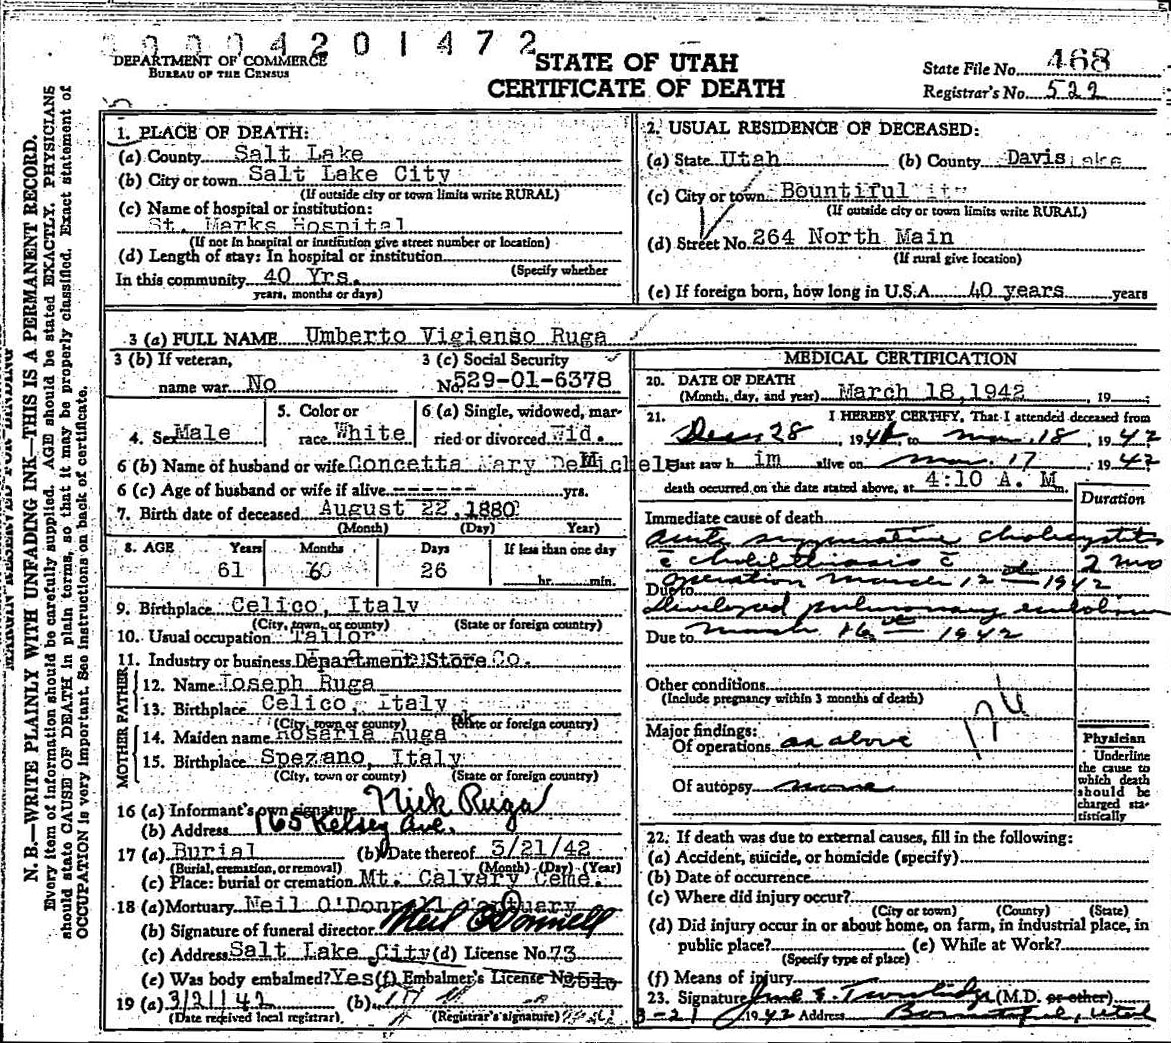 00004201472
DEPARTMENT OF COMMERCE
BUREAU OF THE CENSUS
STATE OF UTAH
CERTIFICATE OF DEATH
State File No. 468
Registrar's No. 522
N. B.—WRITE PLAINLY WITH UNFADING INK—THIS IS A PERMANENT RECORD.
Every item of information should be carefully supplied. AGE should be stated EXACTLY. PHYSICIANS
should state CAUSE OF DEATH in plain terms, so that it may be properly classified. Exact statement of
OCCUPATION is very important. See instructions on back of certificate.
1. PLACE OF DEATH:
(a) County Salt Lake
(b) City or town Salt Lake City
(If outside city or town limits write RURAL)
(c) Name of hospital or institution:
St. Marks Hospital
(If not in hospital or institution give street number or location)
(d) Length of stay: In hospital or institution
(Specify whether
In this community 40 Yrs.
years, months or days)
2. USUAL RESIDENCE OF DECEASED:
(a) State Utah (b) County Davis
(c) City or town Bountiful
(If outside city or town limits write RURAL)
(d) Street No. 264 North Main
(If rural give location)
(e) If foreign born, how long in U.S.A. 40 years years
3 (a) FULL NAME Umberto Vigienso Ruga
3 (b) If veteran, name war No
3 (c) Social Security No. 529-01-6378
4. Sex Male
5. Color or race White
6 (a) Single, widowed, married or divorced Wid.
6 (b) Name of husband or wife Concetta Mary DeMichele
6 (c) Age of husband or wife if alive ------ yrs.
7. Birth date of deceased August 22, 1880
(Month) (Day) Year)
8. AGE Years Months Days If less than one day
61 6 26 hr. min.
9. Birthplace Celico, Italy
(City, town, or county) (State or foreign country)
10. Usual occupation Tailor
11. Industry or business Department Store Co.
FATHER
12. Name Joseph Ruga
13. Birthplace Celico, Italy
(City, town or county) (State or foreign country)
MOTHER
14. Maiden name Rosaria Ruga
15. Birthplace Spezano, Italy
(City, town or county) (State or foreign country)
16 (a) Informant's own signature Nick Ruga
(b) Address 165 Kelsey Ave.
17 (a) Burial (b) Date thereof 3/21/42
(Burial, cremation, or removal) (Month) (Day) (Year)
(c) Place: burial or cremation Mt. Calvary Ceme.
18 (a) Mortuary Neil O'Donnell Mortuary
(b) Signature of funeral director Neil O'Donnell
(c) Address Salt Lake City (d) License No. 73
(e) Was body embalmed? Yes (f) Embalmer's License No.
19 (a) 3/21/42 (b)
(Date received local registrar) (Registrar's signature)
MEDICAL CERTIFICATION
20. DATE OF DEATH
(Month, day, and year) March 18, 1942, 19
21. I HEREBY CERTIFY, That I attended deceased from
Dec. 28, 1941 to Mar. 18, 1942
I last saw h im alive on Mar. 17, 1942
death occurred on the date stated above, at 4:10 A. M.
Duration
Immediate cause of death
acute suppurative cholecystitis
c cholelithiasis c 2 mo
Due to operation March 12th - 1942
developed pulmonary embolism
Due to March 16th - 1942
Other conditions
(Include pregnancy within 3 months of death)
Major findings:
Of operations as above
Of autopsy none
Physician
Underline
the cause to
which death
should be
charged sta-
tistically
22. If death was due to external causes, fill in the following:
(a) Accident, suicide, or homicide (specify)
(b) Date of occurrence
(c) Where did injury occur?
(City or town) (County) (State)
(d) Did injury occur in or about home, on farm, in industrial place, in
public place? (e) While at Work?
(Specify type of place)
(f) Means of injury
23. Signature (M.D. or other)
3-21 1942 Address Bountiful, Utah